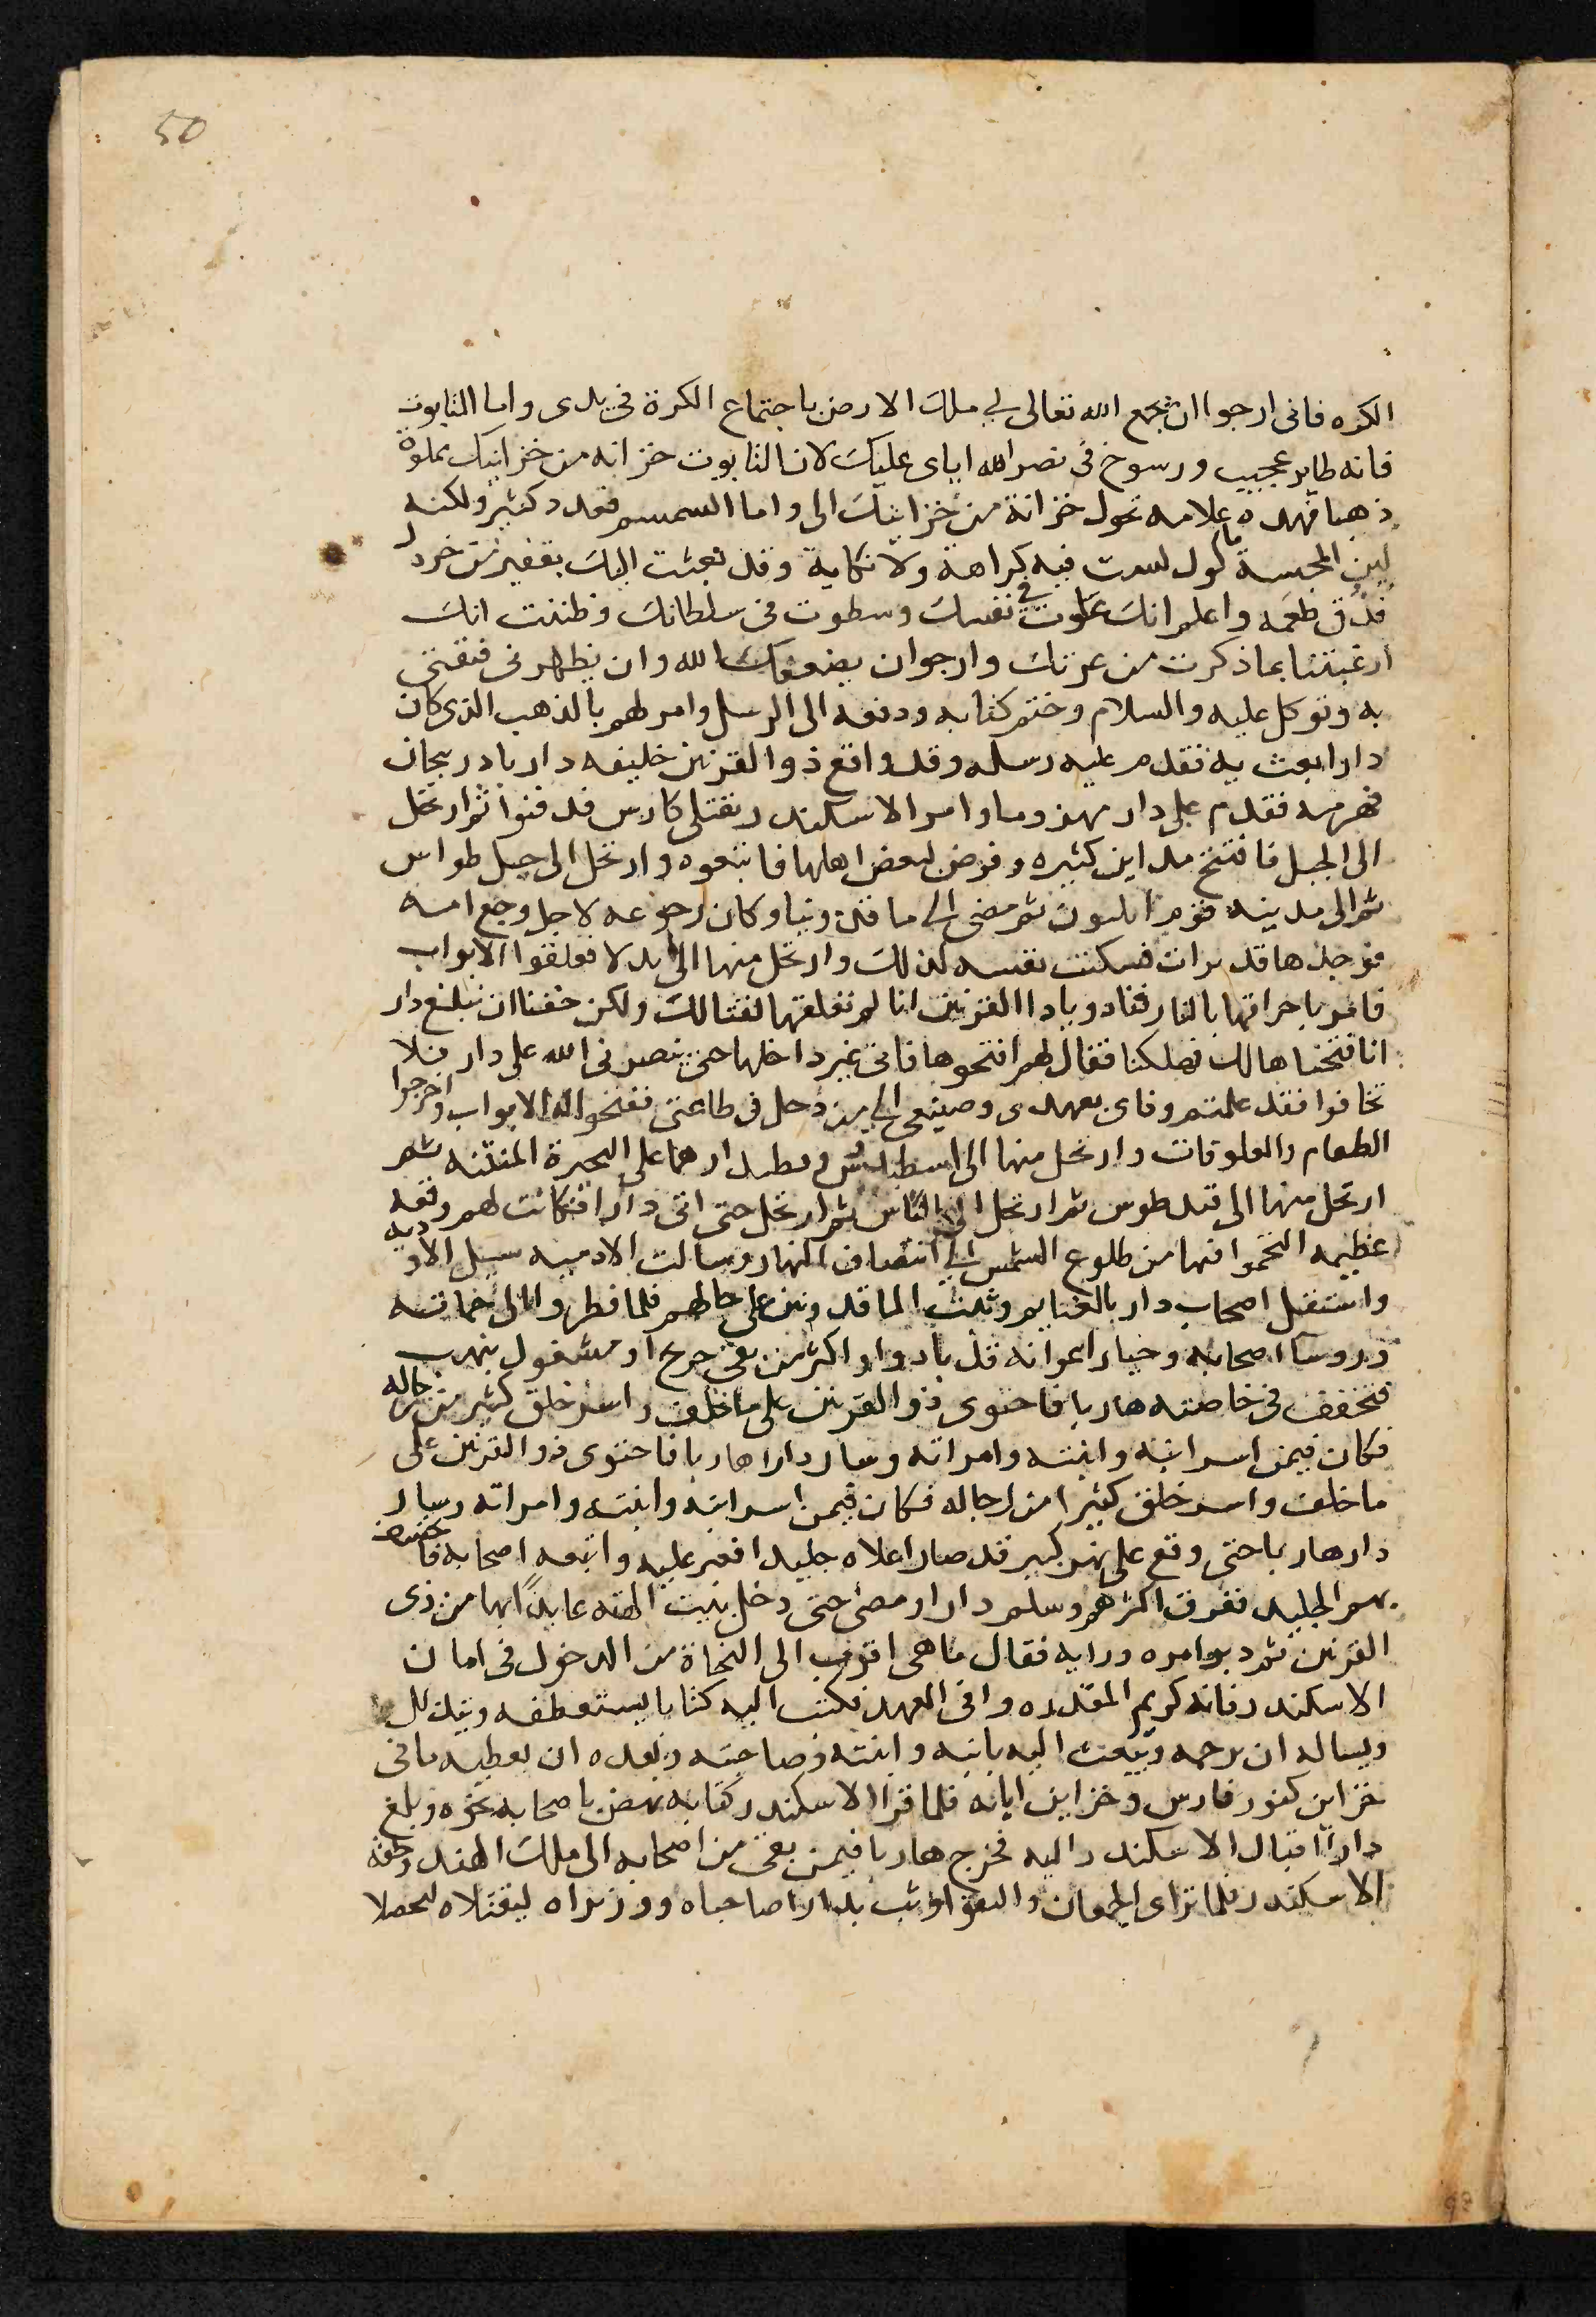 50
الكره فانى ارجوا ان يجمع الله تعالى لي ملك الارض باجتماع الكرة في يدى واما التابوت
فانه طاير عجيب ورسوخ فى نصر الله اياى عليك لان التابوت خزانه من خزاينك مملوة
ذهبا فهده علامه تحول خزانة من خزاينك الى واما السمسم فعدد كثير ولكنه
لين المجسة ماكول ليست فيه كراهة ولا نكاية وقد بعثت اليك بقفيز من خردل
فذق طعمه واعلم انك علوت في نفسك وسطوت فى سلطانك وظننت انك
ارغبتنا بما ذكرت من عزتك وارجوا ن يضعك الله وان يظهرنى فثقتى
به وتوكل عليه والسلام وختم كتابه ودفعه الى الرسل وامر لهم بالذهب الذى كان
دارا بعث به فقدم عليه رسله وقد واقع ذوا القرنين خليفه دار باذربيجان
فهزمه فقدم على دار مهزوما وامر الاسكندر بقتلى فارس فدفنوا ثم ارتحل
الى الجبل فافتتح مداين كثيره وفرض لبعض اهلها فاتبعوه وارتحل الى جبل طواس
ثم الى مدينه قوم ايليون ثم مضى الى ماقدونيا وكان رجوعه لاجل وجع امه
فوجدها قد برات فسكنت نفسه لذلك وارتحل منها الى بدلا فغلقوا الابواب
فامر باحراقها بالنار فنادو ياذا القرنين انا لم نغلقها لقتالك ولكن خفنا ان تبلغ دار
انا فتحناها لك فهلكنا فقال لهم افتحوها فانى غير داخلها حتى ينصرنى الله على دار فلا
تخافوا فقد علمتم وفاى بعهدى وصنيعى الى من دخل فى طاعتى ففتحوا له الابواب واخرجوا
الطعام والعلوفات وارتحل منها الى على البحيرة المنتنه ثم
ارتحل منها الى طوس ثم ارتحل الى ثم ارتحل حتى اتى دارا فكانت لهم وقعه
عظيمه التحموا فيها من طلوع الشمس الى انتصاف النهار وسالت الادميه سيل الاوديه
واشتغل اصحاب دار بالغنايم وثبت الماقدونين على حالهم فلما نظر والى حماته
وروسا اصحابه وخيار اعوانه قد بادوا واكثر من بقى جرح او مشغول بنهب
فتخفف فى خاصته هاربا فاحتوى ذوا القرنين على ماخلف واسر خلق كثير من رجاله
فكان فيمن اسر ابنه وابنته وامراته وسار دارا هاربا فاحتوى ذو القرنين على
ما خلف واسر خلق كثيرا من رجاله فكان فيمن اسر ابنه وابنته وامراته وسار
دار هاربا حتى وقع على نهر كبير قد صار اعلاه جليدا فعبر عليه واتبعه اصحابه فانخسف
بهم الجليد فغرق اكثرهم وسلم دارا ومضى حتى دخل بيت الهته عايدًا بها من ذى
القرنين ثم دبر امره ورايه فقال ما هى اقرب الى النجاة من الدخول فى امان
الاسكندر فانه كريم المقدره وافى العهد فكتب اليه كتابا يستعطفه ويتذلل
ويساله ان يرحمه ويبعث اليه بابنه وابنته وصاحبته ويعده ان يعطيه مافى
خزاين كنوز فارس وخزاين ابايه فلما قرا الاسكندر كتابه نهض باصحابه نحوه وبلغ
دارا اقبال الاسكندر اليه فخرج هاربا فيمن بقى من اصحابه الى ملك الهند ولحقه
الاسكندر فلما تراى الجمعان والتقوا وثب بدارا صاحباه ووزيراه ليقتلاه ليحصلا